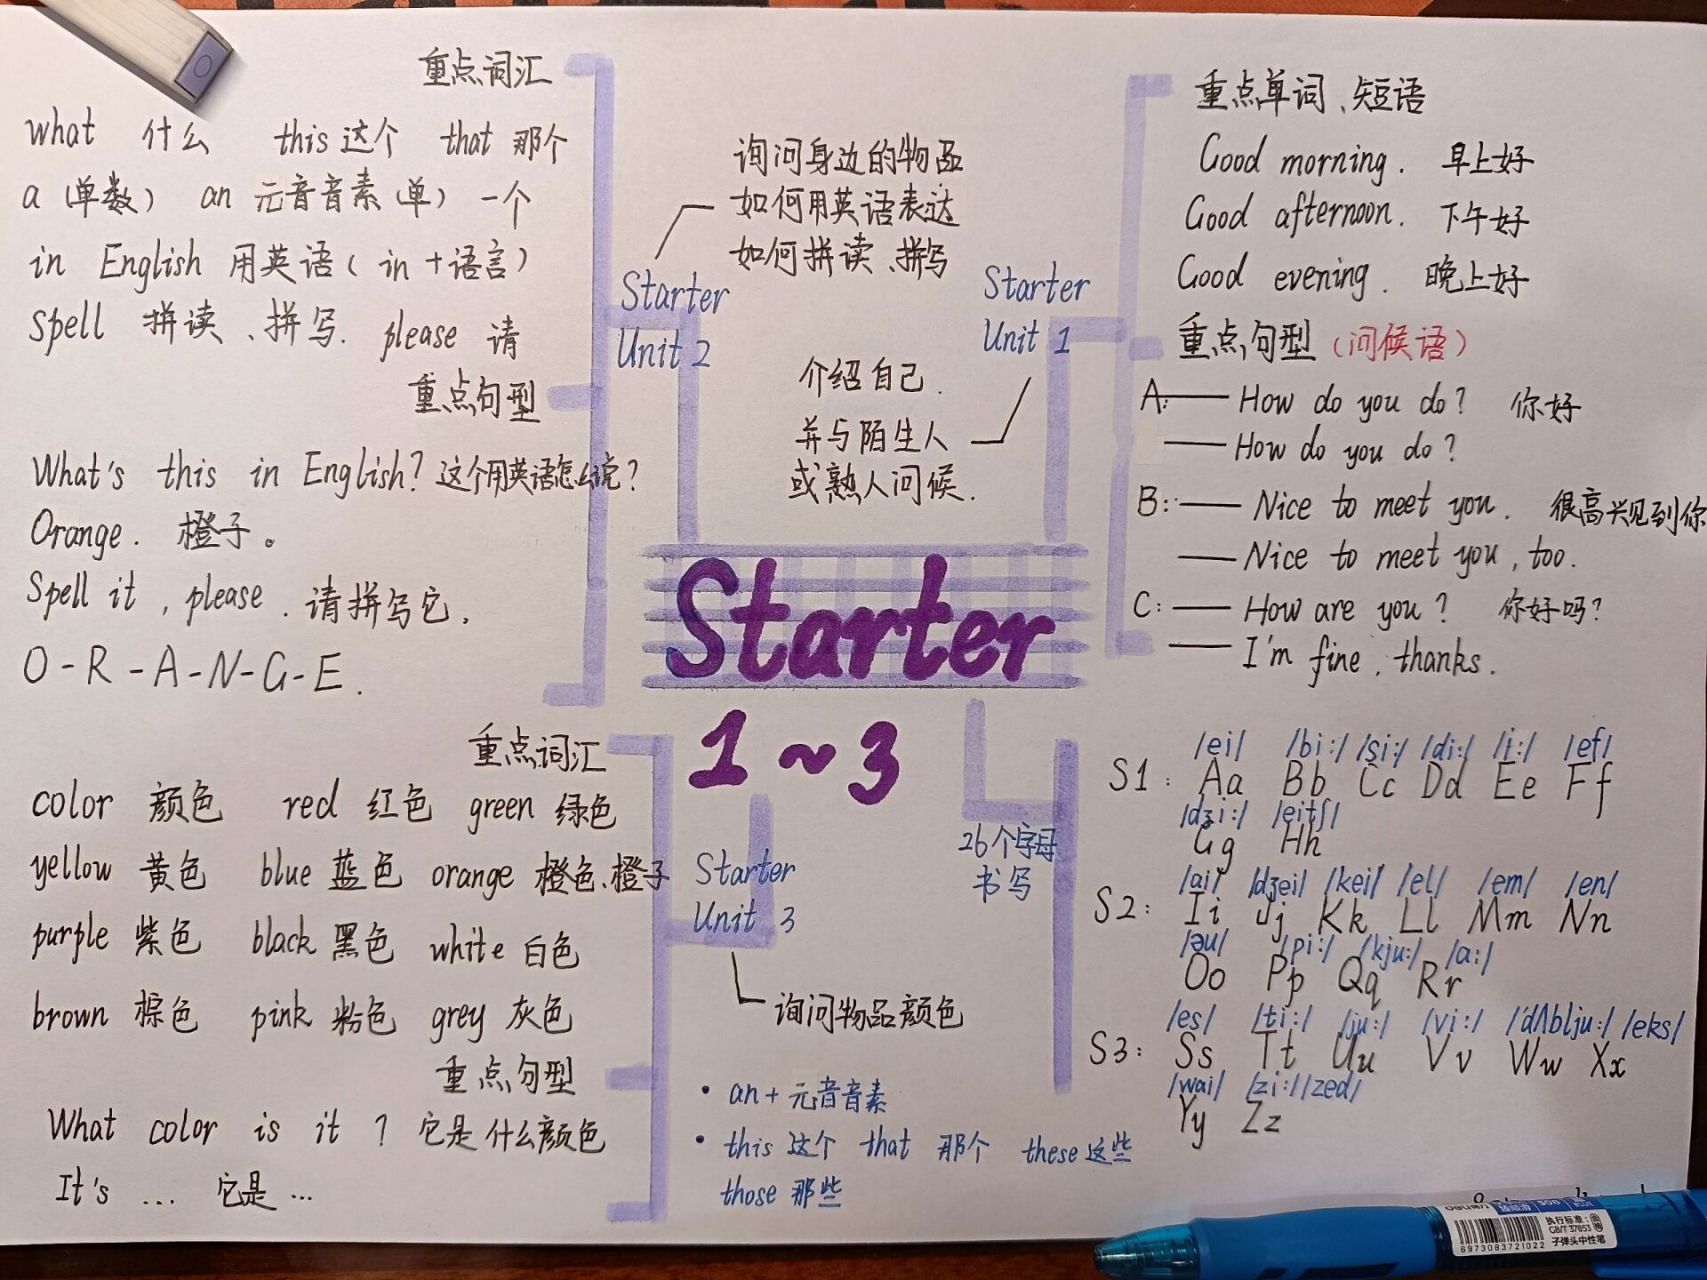 重点词汇
what 什么 this 这个 that 那个
a (单数) an 元音音素(单) 一个
in English 用英语 ( in + 语言)
spell 拼读、拼写. please 请
重点句型
What's this in English? 这个用英语怎么说?
Orange. 橙子。
Spell it , please . 请拼写它.
O - R - A - N - G - E .
询问身边的物品
如何用英语表达
如何拼读、拼写
Starter
Unit 2
Starter
Unit 1
介绍自己.
并与陌生人
或熟人问候.
重点单词、短语
Good morning. 早上好
Good afternoon. 下午好
Good evening. 晚上好
重点句型 (问候语)
A: —— How do you do? 你好
—— How do you do?
B: —— Nice to meet you. 很高兴见到你
—— Nice to meet you, too.
C: —— How are you? 你好吗?
—— I'm fine, thanks.
Starter
1~3
重点词汇
color 颜色 red 红色 green 绿色
yellow 黄色 blue 蓝色 orange 橙色、橙子
purple 紫色 black 黑色 white 白色
brown 棕色 pink 粉色 grey 灰色
重点句型
What color is it ? 它是什么颜色
It's ... 它是 ...
Starter
Unit 3
询问物品颜色
• an + 元音音素
• this 这个 that 那个 these 这些
those 那些
26个字母
书写
/ei/ /bi:/ /si:/ /di:/ /i:/ /ef/
S1: Aa Bb Cc Dd Ee Ff
/dʒi:/ /eitʃ/
Gg Hh
/ai/ /dʒei/ /kei/ /el/ /em/ /en/
S2: Ii Jj Kk Ll Mm Nn
/əu/ /pi:/ /kju:/ /a:/
Oo Pp Qq Rr
/es/ /ti:/ /ju:/ /vi:/ /'dʌblju:/ /eks/
S3: Ss Tt Uu Vv Ww Xx
/wai/ /zi:/ /zed/
Yy Zz
执行标准:
GB/T 37853
子弹头中性笔
6973083721022